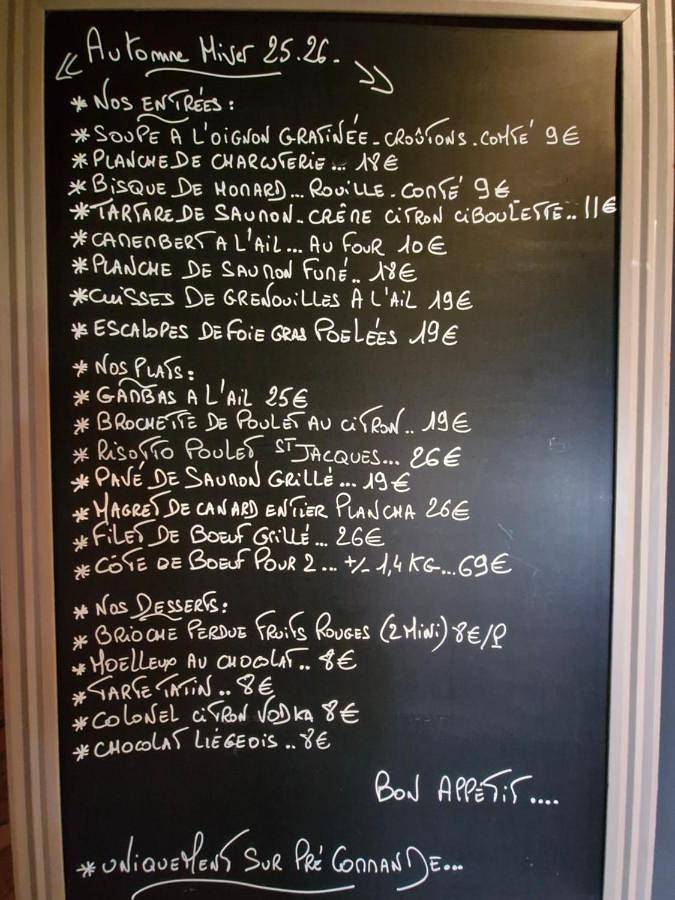 Automne Hiver 25.26.
* NOS ENTRÉES :
* SOUPE A L'OIGNON GRATINÉE - CROÛTONS. COMTÉ 9€
* PLANCHE DE CHARCUTERIE... 18€
* BISQUE DE HOMARD... ROUILLE. COMTÉ 9€
* TARTARE DE SAUMON - CRÈME CITRON CIBOULETTE.. 11€
* CAMEMBERT A L'AIL... AU FOUR 10€
* PLANCHE DE SAUMON FUMÉ.. 18€
* CUISSES DE GRENOUILLES À L'AIL 19€
* ESCALOPES DE FOIE GRAS POELÉES 19€
* NOS PLATS :
* GAMBAS A L'AIL 25€
* BROCHETTE DE POULET AU CITRON.. 19€
* RISOTTO POULET ST JACQUES... 26€
* PAVÉ DE SAUMON GRILLÉ... 19€
* MAGRET DE CANARD ENTIER PLANCHA 26€
* FILET DE BOEUF GRILLÉ... 26€
* CÔTE DE BOEUF POUR 2... +/- 1,4 KG... 69€
* NOS DESSERTS :
* BRIOCHE PERDUE FRUITS ROUGES (2 MINI) 8€/P
* MOELLEUX AU CHOCOLAT.. 8€
* TARTE TATIN.. 8€
* COLONEL CITRON VODKA 8€
* CHOCOLAT LIÉGEOIS.. 8€
BON APPÉTIT....
* UNIQUEMENT SUR PRÉ COMMANDE...